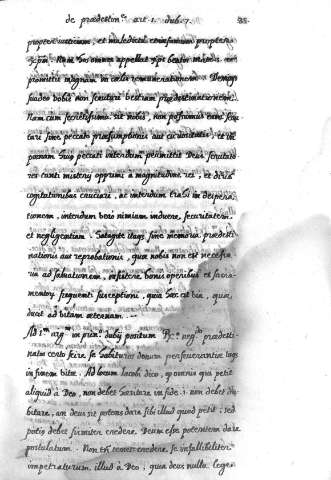 de prædestin.e art. 1. dub. 7.
propter iustitiam, et maledicti
Xpm. Nam hos omnes appellat Xps beatos
promittit magnam in cœlis remunerationem. Demum
suadeo vobis non scrutari vestram prædestinationem,
Nam cum secretissima sit nobis, non possumus eam scru
tari sine peccato præsumptionis aut curiositatis: et in
pœnam huius peccati interdum permittit Deus scrutato
res tanti mistery opprimi a magnitudine rei, et
cogitationibus cruciari, ac interdum trahi in despera
tionem, interdum vero nimiam inducere securitatem
et negligentiam. Satagite itaque sine memoria prædesti
nationis aut reprobationis, quæ nobis non est necessa
ria ad salvationem, insistere bonis operibus et sacra
mentorum frequenti susceptioni, quia hæc est via, quæ
ducit ad vitam æternam.
Ad 1.m arg.m in prin. duby positum
natum certo scire se habiturum donum perseverantiæ usque
in finem vitæ. Ad locum Iacobi dico, quod omnis qui petit
aliquid à Deo, non debet hæsitare in fide. i. non debet du
bitare, an deus sit potens dare sibi illud quod petit; sed
potius debet firmiter credere Deum esse potentem dare
postulatum. Non tamen tenetur credere se infallibiliter
impetraturum illud à Deo; quia deus nulla lege